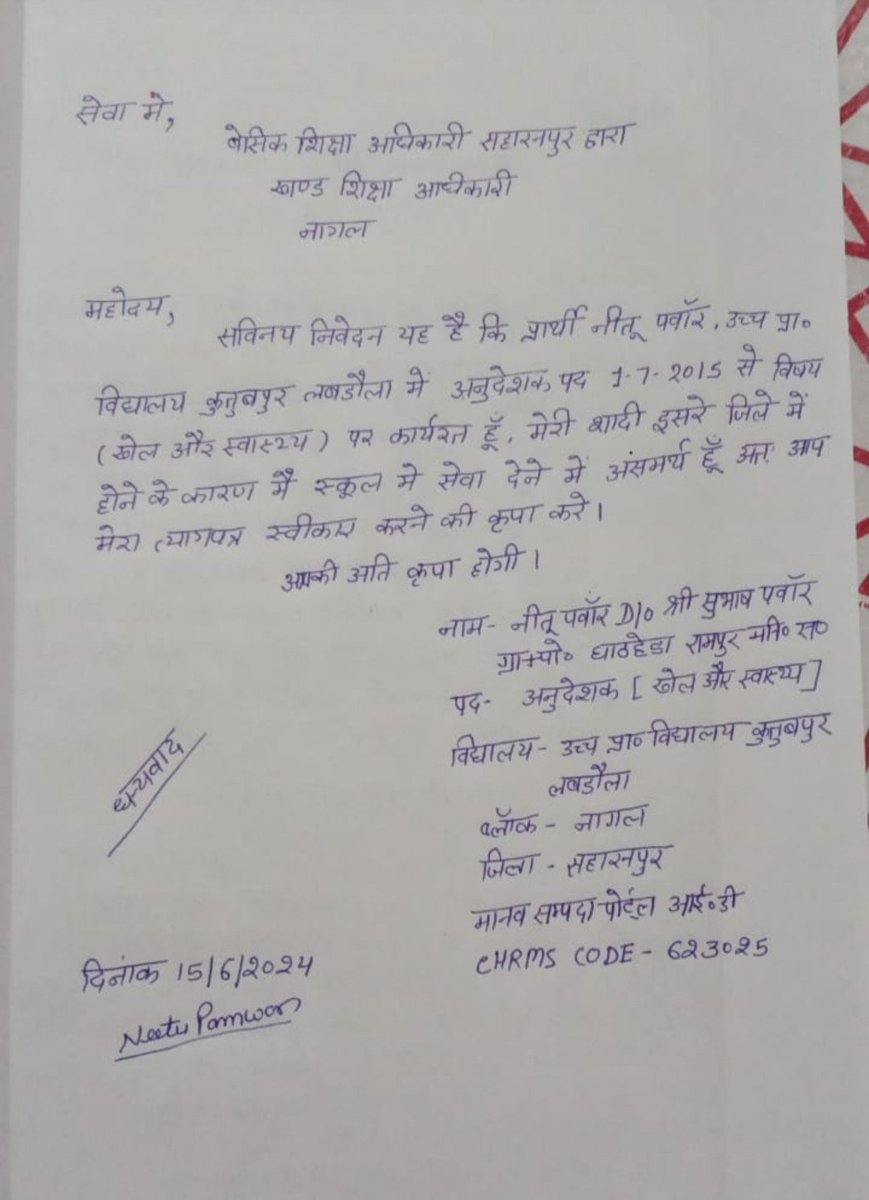 सेवा मे,
बेसिक शिक्षा अधिकारी सहारनपुर द्वारा
खण्ड शिक्षा अधिकारी
नागल
महोदय,
सविनय निवेदन यह है कि प्रार्थी नीतू पवॉर, उच्च प्रा०
विद्यालय कुतुबपुर लबडौला में अनुदेशक पद 1-7-2015 से विषय
(खेल और स्वास्थ्य) पर कार्यरत हूँ, मेरी शादी दूसरे जिले में
होने के कारण मै स्कूल मे सेवा देने में असमर्थ हूँ अतः आप
मेरा त्यागपत्र स्वीकार करने की कृपा करे।
आपकी अति कृपा होगी।
नाम- नीतू पवॉर D/o श्री सुभाष पवॉर
ग्रा+पो० घाठहेडा रामपुर मनि० स०
पद- अनुदेशक [खेल और स्वास्थ्य]
विद्यालय- उच्च प्रा० विद्यालय कुतुबपुर
लबडौला
धन्यवाद
ब्लॉक - नागल
जिला - सहारनपुर
मानव सम्पदा पोर्टल आई०डी
EHRMS CODE - 623025
दिनांक 15/6/2024
Neetu Pamwar